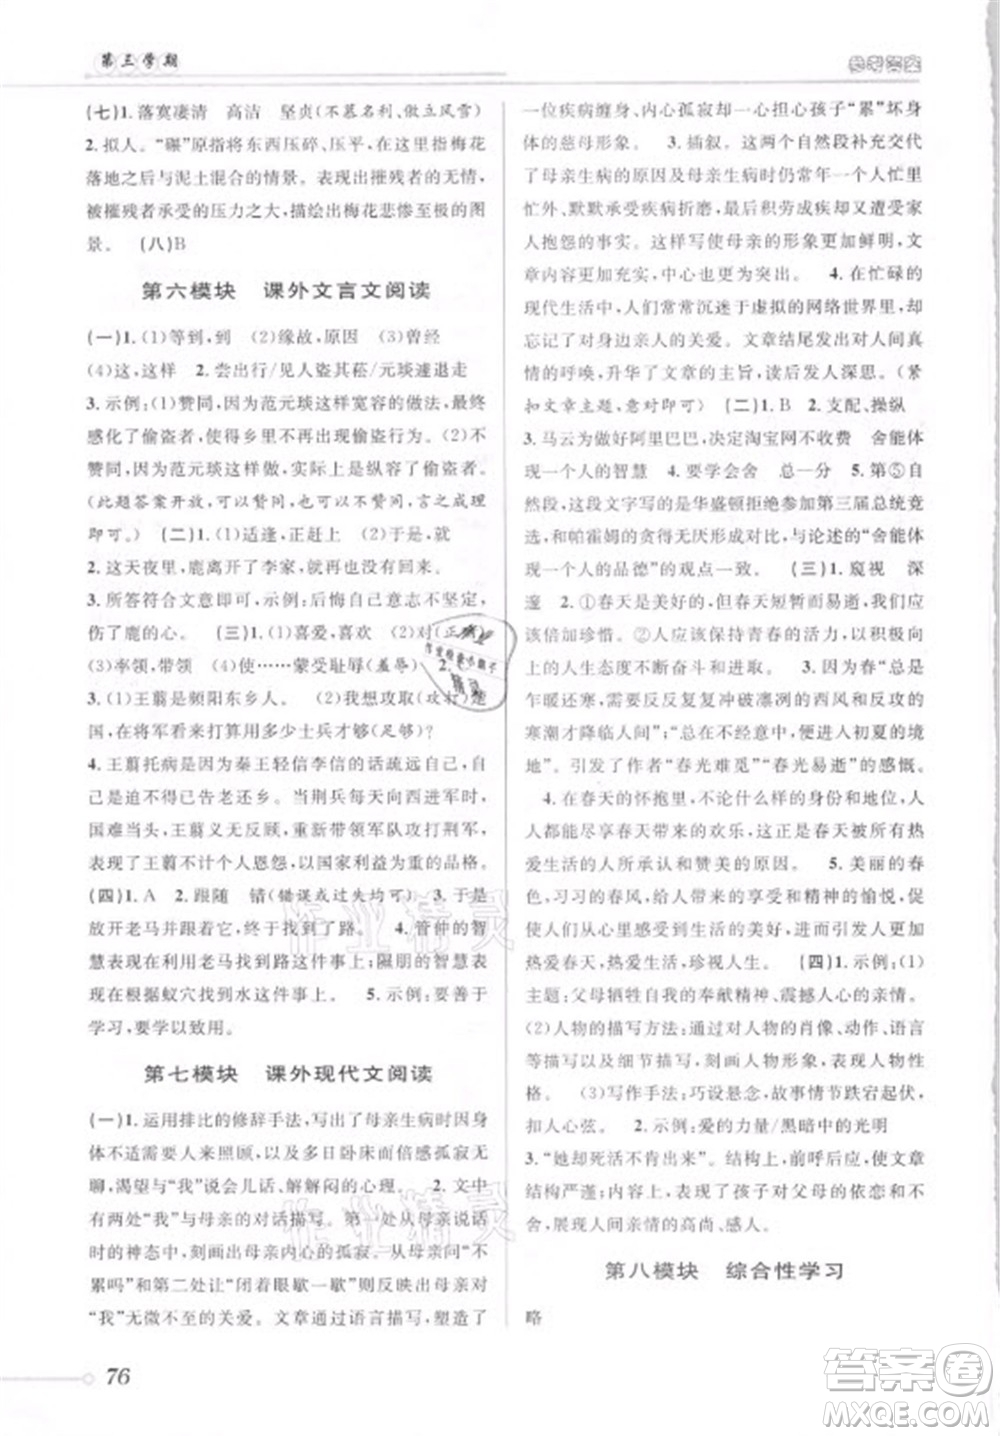 第三学期
参考答案
(七)1. 落寞凄清　高洁　坚贞(不慕名利、傲立风雪)
2. 拟人。“碾”原指将东西压碎、压平,在此指梅花
落地之后与泥土混合的情景。表现出摧残者的无情,
被摧残者承受的压力之大,描绘出梅花悲惨至极的图
景。　(八)B
第六模块　课外文言文阅读
(一)1. (1)等到,到　(2)缘故,原因　(3)曾经
(4)这,这样　2. 尝出行/见人盗其菘/元琰遽退走
3. 示例:(1)赞同,因为范元琰这样宽容的做法,最终
感化了偷盗者,使得乡里安定,没有了偷盗。(2)不
赞同,因为范元琰这样做,实际上是纵容了偷盗者。
(此题答案开放,可以赞同,可以不赞同,言之成理
即可)　(二)1. (1)适逢,正赶上　(2)于是,就
2. 这天夜里,鹿离开了李家,就没有再回来。
3. 所答符合文意即可,示例:后悔自己意志不坚定,
伤了鹿的心。　(三)1. (1)喜爱,喜欢　(2)对(正确)
(3)率领,带领　(4)使……蒙受耻辱(羞辱)　2.
3. (1)王翦是频阳东乡人。　(2)我想攻取(攻打)楚
国,在将军看来打算用多少士兵才够(足够)?
4. 王翦托病是因为秦王轻信李信的话疏远自己,目
的已达成自己告老还乡。当荆兵每天向西进军时,
国难当头,王翦无反顾,重新带领军队攻打荆军,
表现了王翦不计个人恩怨,以国家利益为重的品格。
(四)1. A　2. 跟随　错(错误或过失均可)　3. 于是
放开老马让它前行,终于找到了路。　4. 管仲的智
慧表现在利用老马找到路这件事上;隰朋的智慧表
现在根据蚁穴找到水这件事上。　5. 示例:要善于
学习,要学以致用。
第七模块　课外现代文阅读
(一)1. 运用排比的修辞手法,写出了母亲生病时因身
体不适而需要家人来照顾,以及多日卧床而感到无
聊,渴望与“我”说会儿话、解解闷的心理。　2. 文中
有两处“我”与母亲的对话描写。第一处从母亲说话时
的神态中,刻画出母亲内心的孤寂。从母亲的“不
累吗”和第二处让“闭着眼歇一歇”则反映出母亲对
“我”无微不至的关爱。文章通过语言描写,塑造了
一位疾病缠身、内心孤寂却又一心担心孩子“累”坏身体
的慈母形象。　3. 插叙。这两个自然段补充交代
了母亲生病的原因及母亲生病时仍常年一个人忙里
忙外,默默承受疾病折磨,最终积劳成疾却又遭受家
人抱怨的事实。这样写使母亲的形象更加鲜明,文
章内容更加充实,中心更为突出。　4. 在忙碌的
现代生活中,人们常常沉迷于虚拟的网络世界里,却
忘记了对身边亲人的关爱。文章结尾发出对人间真
情的呼唤,升华了文章的主旨,引发人们深思。(紧
扣文章主题,意对即可)　(二)1. B　2. 支配、操纵
3. 马云为做好阿里巴巴,决定淘宝网不收费　舍能体
现一个人的智慧　4. 要学会舍　总一分　5. 第⑤自
然段,这段文字写的是华盛顿拒绝参加第三届总统竞
选,和帕霍姆的贪求无厌形成对比,与论述的“舍能体
现一个人的品德”的观点一致。　(三)1. 窥视　深
邃　2. ①春天是美好的,但春天短暂而易逝,人们应
该倍加珍惜。②人应该保持青春的活力,以积极向
上的人生态度不断奋斗和进取。　3. 因为春“总是
乍暖还寒,需要反反复复冲破凛冽的西风和反攻的
寒潮才降临人间”;“总在不经意中,进入初夏的境
地”。引发了作者“春光难觅”“春光易逝”的感慨。
4. 在春天的怀抱里,不论什么样的身份和地位,人
人都能尽享春天带来的欢乐,这正是春天被所有热
爱生活的人所赞颂和赞美的原因。　5. 美丽的春
色,习习的春风,给人带来美的享受和精神的愉悦,促
使人们从心里感受到生活的美好,并且更加
热爱春天,热爱生活,珍视人生。　(四)1. 示例:(1)
主题:父母牺牲自我的奉献精神、震撼人心的亲情。
(2)人物的描写方法:通过对人物的肖像、动作、语言
等细节描写,刻画人物形象,表现人物性
格。　(3)写作手法:巧设悬念,故事情节跌宕起伏,
扣人心弦。　2. 示例:爱的力量/黑暗中的光明
3. “她却死活不肯出来”。结构上,前呼后应,使文章
结构严谨;情感上,表现了孩子对父母的依恋和不
舍,展现人间亲情的高尚、感人。
第八模块　综合性学习
略
76
作业精灵
作业精灵
答案卷
MXQE.COM